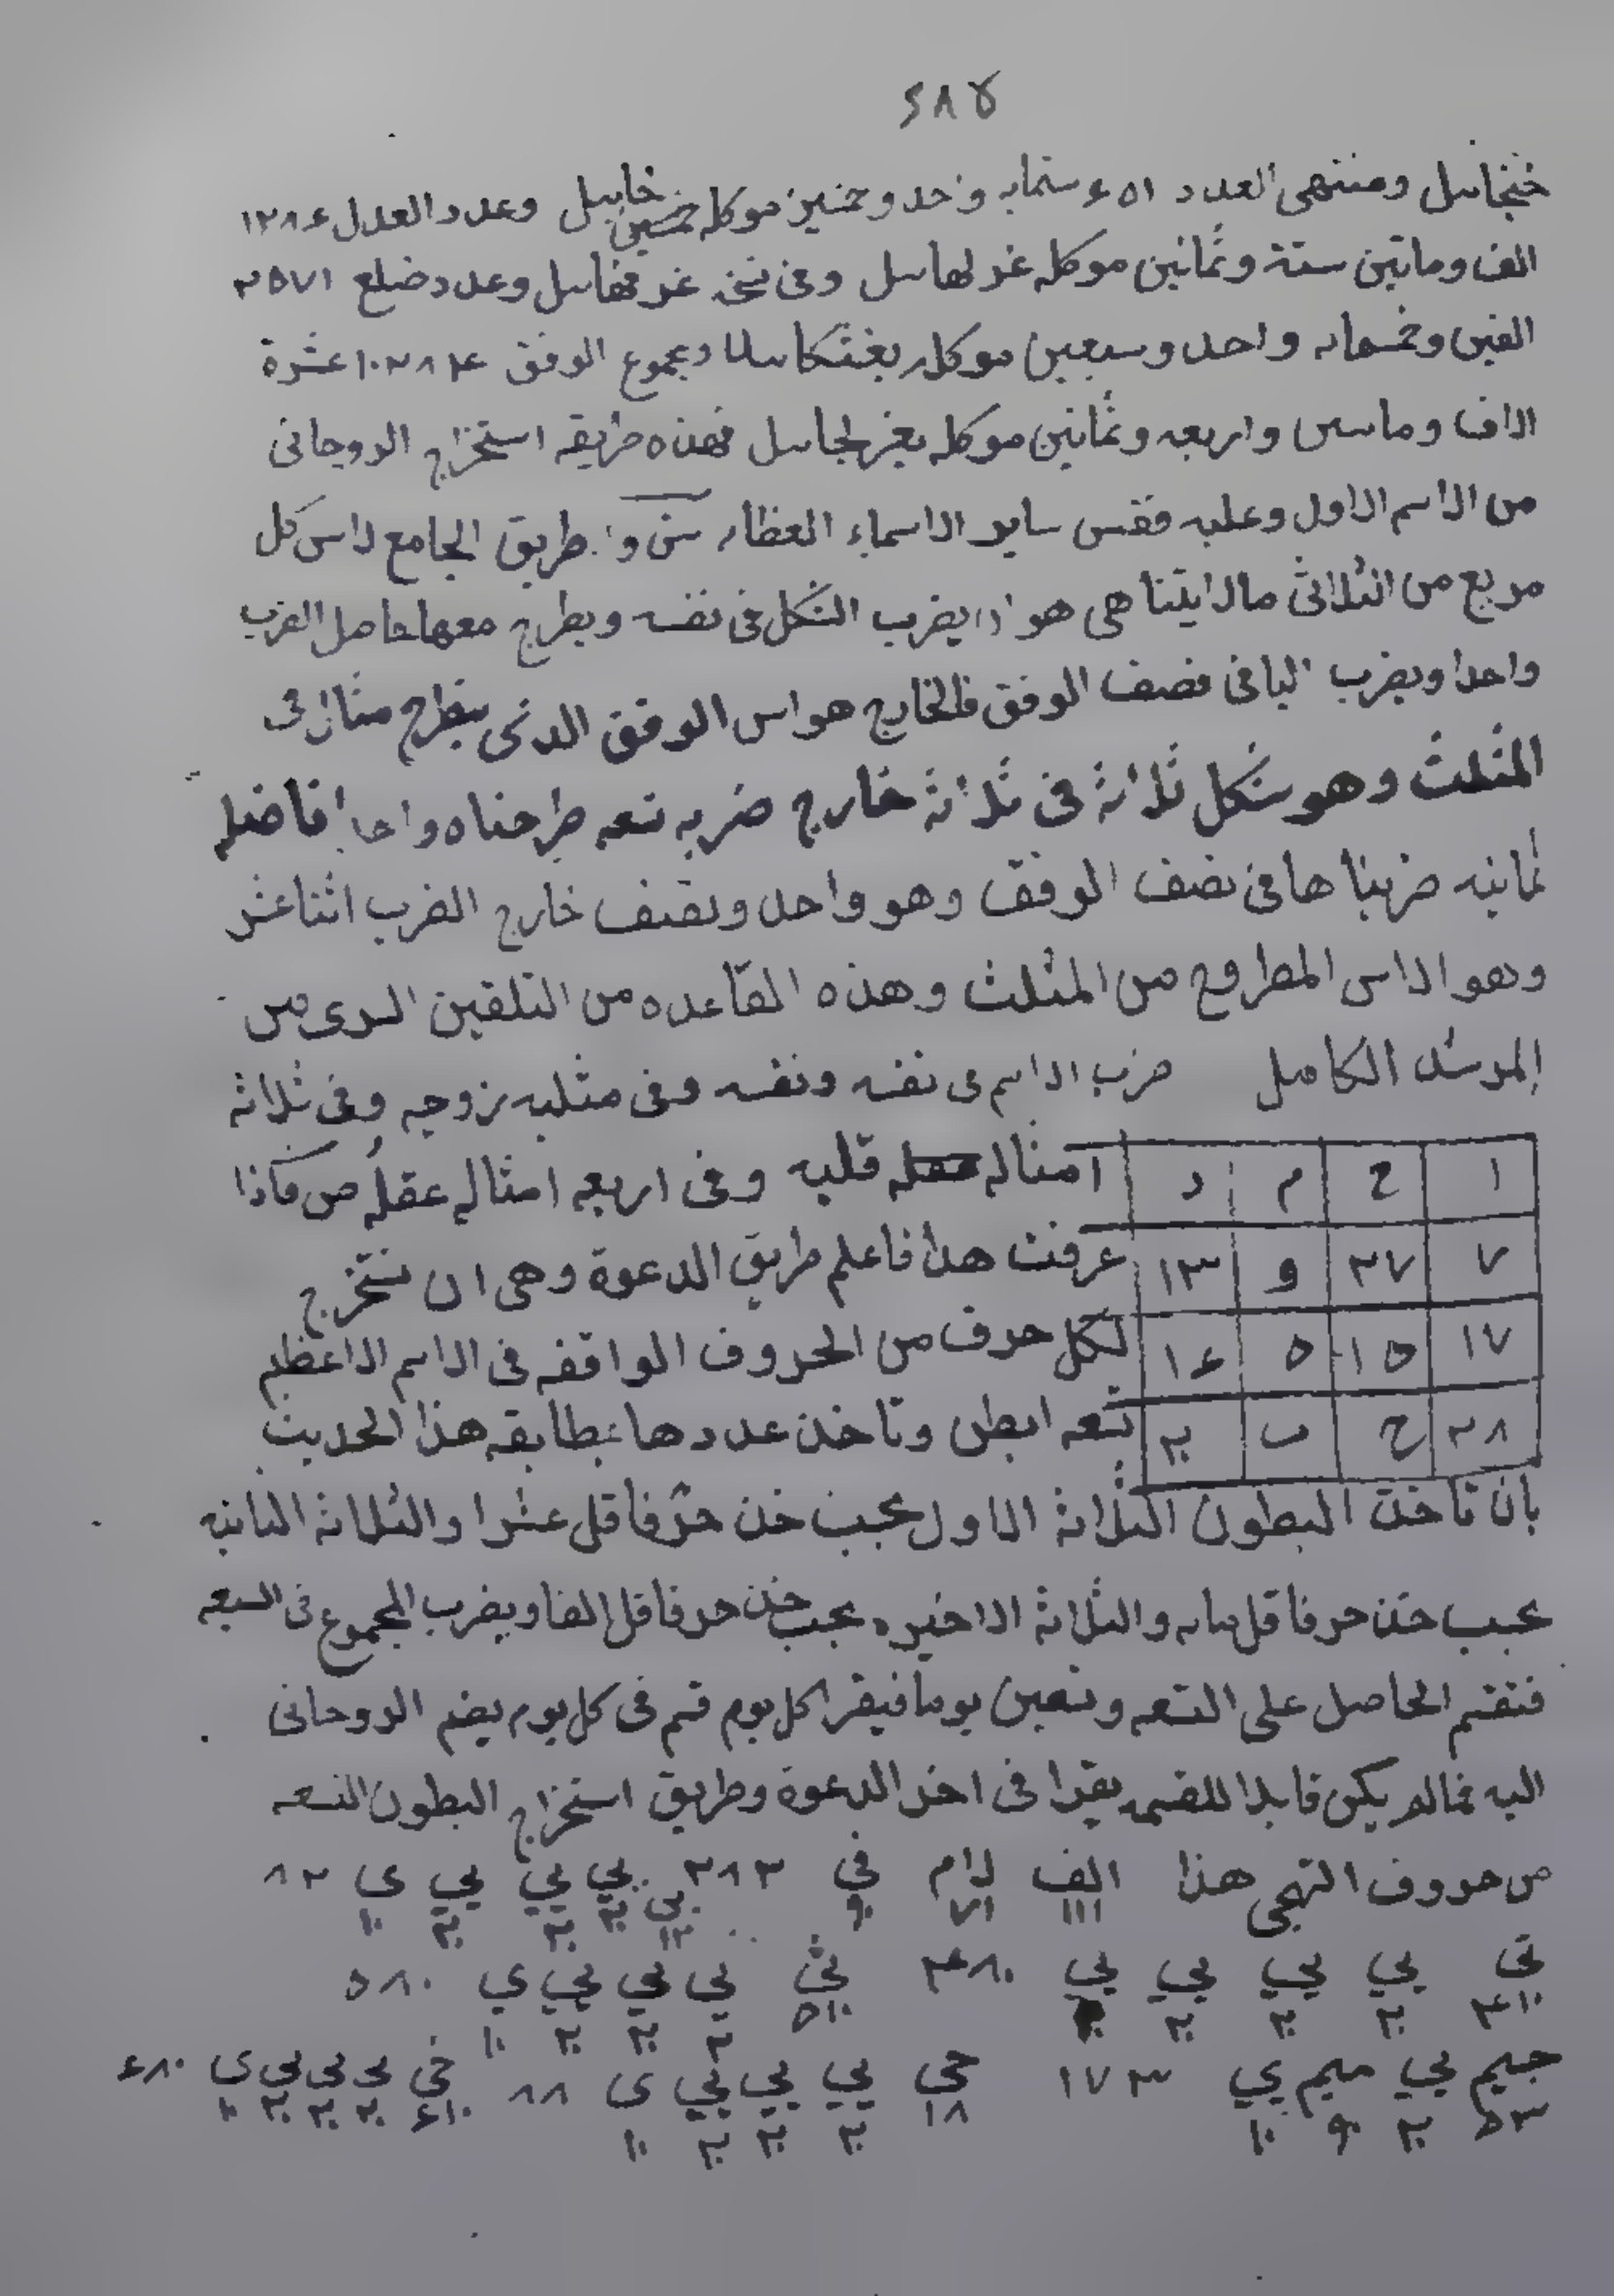 ٢٨٥
ومنتهى العدد ٦٥١ ستمايه واحد وخمسين موكله خاييل وعدد العدل ١٢٨٦
الف وماتين ستة وثمانين موكله وفى نسخه وعدد ضلع ٢٥٧١
الفين وخمسمايه واحد وسبعين موكله ومجموع الوفق ١٠٢٨٤ عشرة
الاف وماتين واربعه وثمانين موكله فهذه طريقه استخراج الروحانى
من الاسم الاول وعليه فقس ساير الاسماء العظام طريق الجامع لاس كل
مربع من الثلاثى مالايتناهى هو ان يضرب الشكل فى نفسه ويطرح معها حاصل الضرب
واحدا ويضرب الباقى فى نصف الوفق فالخارج هو اس الوفق الذى ينطرح مثال فى
المثلث وهو شكل ثلاثة فى ثلاثة خارج ضربه تسعه طرحناه واحدا فاضله
ثمانيه ضربناها فى نصف الوفق وهو واحد ونصف خارج الضرب اثنا عشر
وهو الاس المطروح من المثلث وهذه القاعده من التلقين السرى من
المرشد الكامل ضرب الاسم فى نفسه ونفسه وفى مثليه زوجيه وفى ثلاثة
امثاله قلبه وفى اربعه امثاله عقله ص فاذا
عرفت هذا فاعلم طريق الدعوة وهى ان تستخرج
لكل حرف من الحروف الواقفه فى الاسم الاعظم
تسعه ابطن وتاخذ عددها بمطابقه هذا الحديث
ا ح م د
٧ ٣٧ و ١٣
١٧ ١٥ ٥ ١٦
٢٨ ح ب
بان تاخذ البطون الثلاثة الاول بحسب خذ حرفا قل عشرا والثلاثة الثانيه
بحسب خذ حرفا قل مايه والثلاثة الاخيره بحسب خذ حرفا قل الفا ويضرب المجموع فى السبعه
فتقسم الحاصل على التسعه وتسعين يوما فيقرا كل يوم قسم فى كل يوم يضم الروحانى
اليه فمالم يكن قابلا للقسمه يقرا فى اخر الدعوة وطريق استخراج البطون التسعه
من حروف التهجى هذا الف لام في ٢٨٣ بي يي يي يي ي ٨٢
١١١ ٧١ ٩٠ ١٢ ٢٠ ٢٠ ٢٠ ١٠
تى يي يي يي يي ٤٨٠ ثي يي يي يي ي ٥٨٠
٤١٠ ٢٠ ٢٠ ٢٠ ٥١٠ ٢٠ ٢٠ ٢٠ ١٠
جيم يي ميم ي ١٧٣ حي يي يي يي ي ٨٨ خي يي يي يي ي ٦٨٠
٥٣ ٢٠ ٩٠ ١٠ ١٨ ٢٠ ٢٠ ٢٠ ١٠ ٦١٠ ٢٠ ٢٠ ٢٠ ١٠